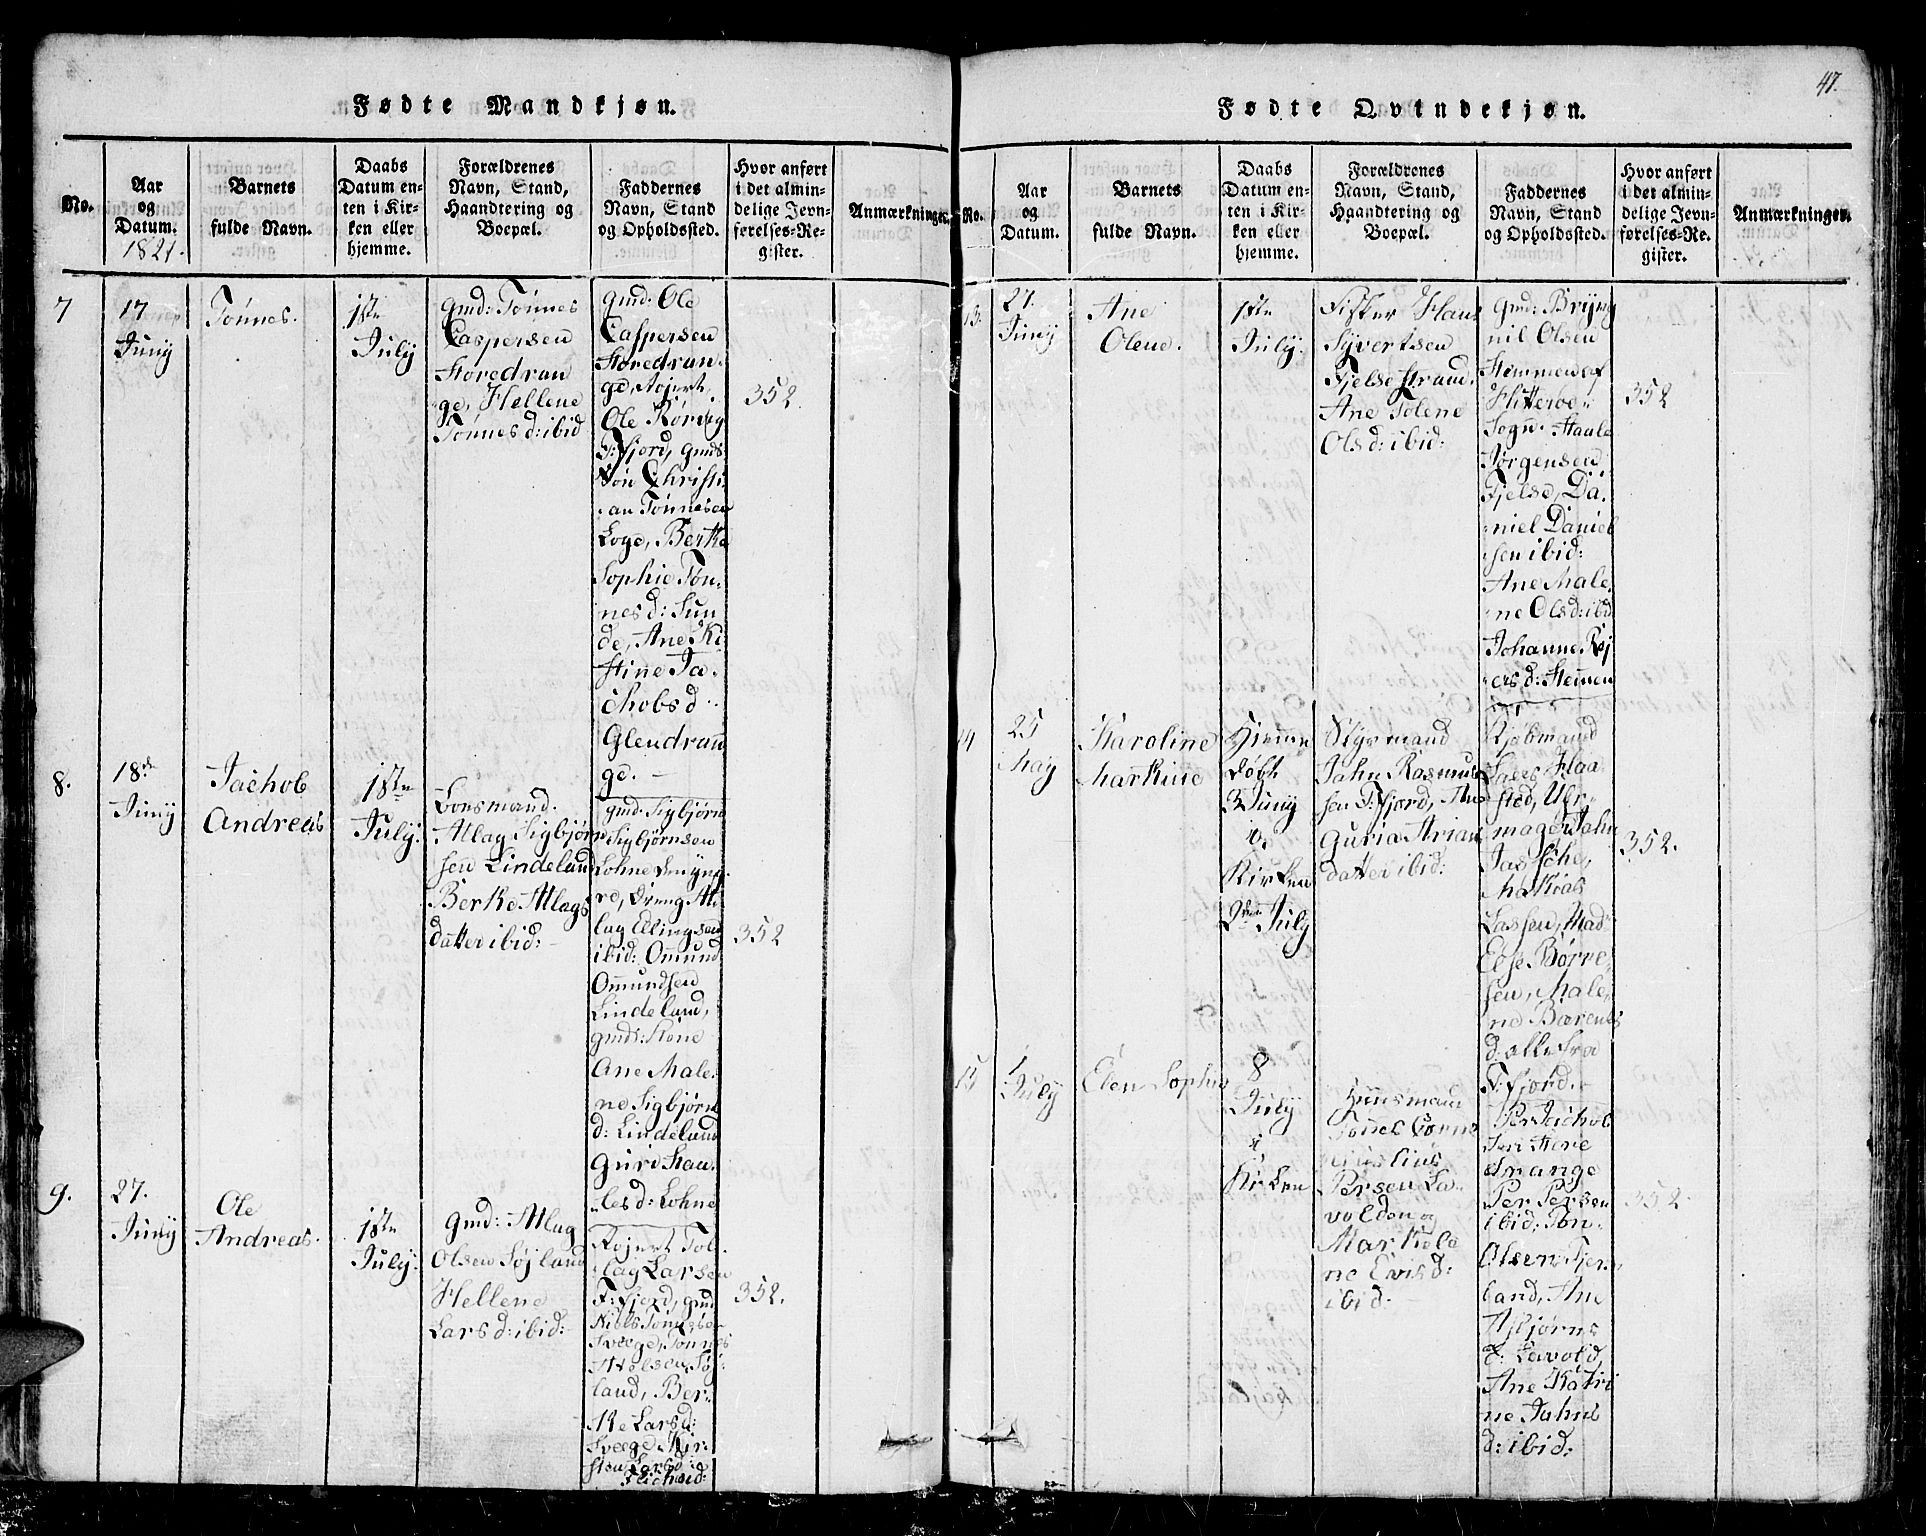 47.
Fødte Mandkjøn.
No.
Aar
og
Datum.
1821.
Barnets
fulde Navn.
Daabs
Datum en-
ten i Kir-
ken eller
hjemme.
Forældrenes
Navn, Stand,
Haandtering og
Boepæl.
Faddernes
Navn, Stand
og Opholdssted.
Hvor anført
i det almin-
delige Jevn-
førelses-Re-
gister.
Anmærkninger.
7
17
Juny
Tønnes.
1ste
July
gmd: Tønnes
Caspersen
Storedran
ge, Hellene
Tønnesd: ibid
gmd: Ole
Caspersen
Storedran-
ge, Rojert
Ole Rørvig
F:fjord, gmds:
søn Christi-
an Tønnesen
Loge, Berthe
Sophie Tøn-
nesd: Sun
de, Ane Ki-
stine Ja-
chobsd:
Glendran
ge.
352.
8.
18de
Juny
Jachob
Andreas
1ste
July.
Atlag Sigbjørn
sen Lindeland
Berthe Atlags
datter ibid:
gmd: Sigbjørn
Sigbjørnsen
Lohne den yng-
re, Dreng At-
lag Ellingsen
ibid: Omund
Omundsen
Lindeland,
gmds: Kone
Ane Male-
ne Sigbjørn
d: Lindeland
Guri Stau-
lesd: Lohne
352
9.
27.
Juny
Ole
Andreas.
1ste
July.
gmd: Atlag
Olsen Søjland
Hellene
Larsd: ibid:
Rojert Tol-
lag Larsen
F:fjord, gmd
Niels Tønnesen
Sveege, Tønnes
Atlelsen Søj-
land, Ber-
the Larsd:
Sveege Kir-
sten Larsd:
ibid:
352.
Fødte Qvindekjøn.
No.
Aar
og
Datum.
Barnets
fulde Navn.
Daabs
Datum en-
ten i Kir-
ken eller
hjemme.
Forældrenes
Navn, Stand,
Haandtering og
Boepæl.
Faddernes
Navn, Stand
og Opholdssted.
Hvor anført
i det almin-
delige Jevn-
førelses-Re-
gister.
Anmærkninger.
13.
27.
Juny
Ane
Olene.
1ste
July.
Fisker Hans
Syvertsen
Fjelse strand.
Ane Tolene
Olsd: ibid:
gmd: Bryng
nil Olsen
Stemmen af
Hitterøe
Sogn. Staale
Jørgensen
Fjelse, Da-
niel Daniel
sen ibid:
Ane Male-
ne Olsd: ibid
Johanne Rej
ersd: Stemen
352
14
25
May
Karoline
Marthine
Hjemme
døbt
3 Juny
i
Kirken
2den July
Styrmand
Jahn Rasmus
sen F:fjord, Ane
Guria Arian
datter ibid:
Kjøbmand
Lars Flaa
sted, Uhr-
mager Jahn
Jassøhe,
Mathias
Lassen, Mad
Else Børre-
sen, Male-
ne Bærents
d: alle fra
F:fjord.
352.
15
1
July
Elen Sophie
8
July
i
Kirken
Huusmand
Tønnes Corne
liusLius
Persen La-
volden og
Marthele
ne Evisd:
ibid:
Per Jachob
sen Store
drange
Per Persen
ibid, Tøn-
Olsen Fjer-
land, Ane
Asbjørns
d: Lavold,
Ane Kathri
ne Jahns
d: ibid:
352.